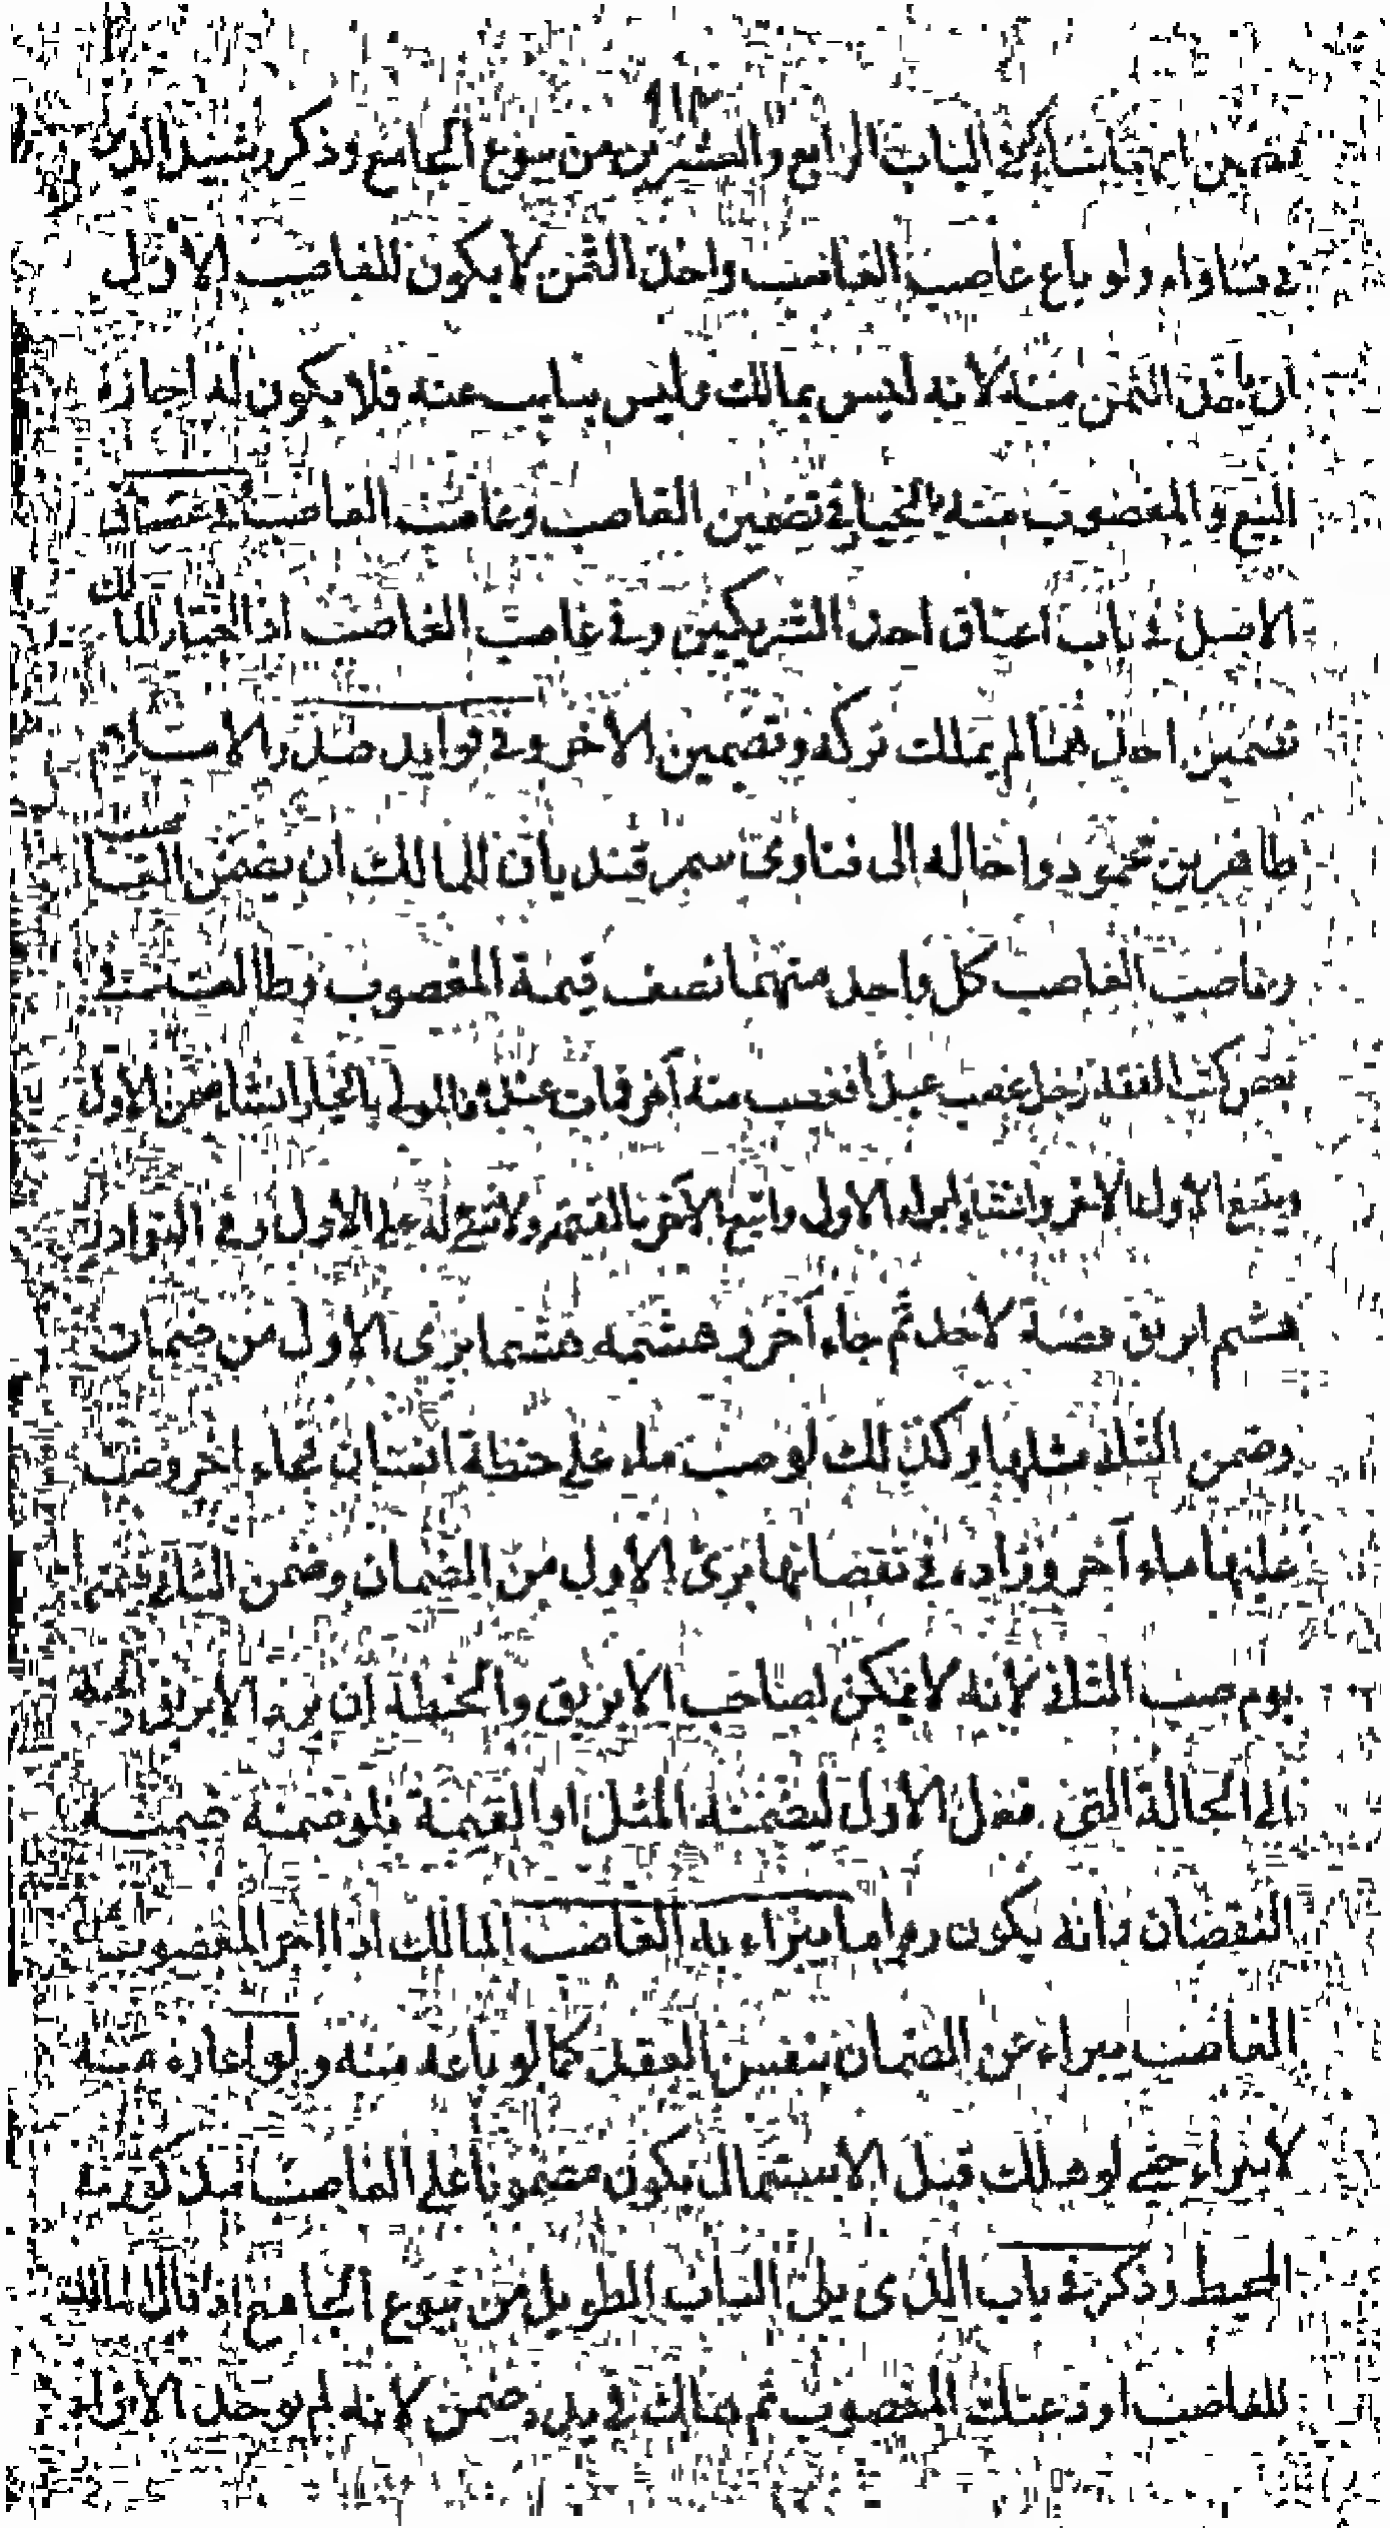 ٩١٣
تضمين ايهما شاء في الباب الرابع والعشرين من بيوع الجامع وذكر رشيد الدين
في فتاواه ولو باع غاصب الغاصب واخذ الثمن لا يكون للغاصب الاول
ان ياخذ الثمن منه لانه ليس بمالك وليس بنايب عنه فلا يكون له اجازة
البيع والمغصوب منه بالخيار في تضمين الغاصب وغاصب الغاصب في عتاق
الاصل في باب اعتاق احد الشريكين وفي غاصب الغاصب اذا اختار المالك
تضمين احدهما لم يملك تركه وتضمين الاخر وفي فوايد صدر الاسلام
طاهر بن محمود واحاله الى فتاوى سمرقند بان للمالك ان يضمن الغاصب
وغاصب الغاصب كل واحد منهما نصف قيمة المغصوب وطالعت في
بعض كتب الفقه رجل غصب عبدا فغصب منه آخر فمات عنده فالمولى بالخيار ان شاء ضمن الاول
ويتبع الاول الاخر وان شاء ابراء الاول واتبع الآخر بالقيمة ولا شئ له على الاول وفي النوادر
هشم ابريق فضة لاحد ثم جاء آخر وهشمه هشما برى الاول من ضمان
وضمن الثاني مثلها وكذلك لو صب ماء على حنطة انسان فجاء اخر وصب
عليها ماء آخر وزاد في نقصانها برئ الاول من الضمان وضمن الثاني قيمته
يوم صب الثاني لانه لا يمكن لصاحب الابريق والحنطة ان يرد الابريق
الى الحالة التى فعل الاول ليضمنه المثل او القيمة فلو ضمنه ضمنه
النقصان وانه يكون ربوا ما يبراء به الغاصب المالك اذا اجر المغصوب
الغاصب يبراء عن الضمان بنفس العقد كما لو باعه منه ولو اعاره منه
لا يبراء حتى لو هلك قبل الاستعمال يكون مضمونا على الغاصب مذكور في
المحيط وذكر في باب الذى يلى الباب الطويل من بيوع الجامع اذا قال المالك
للغاصب اودعتك المغصوب ثم هلك في يده ضمن لانه لم يوجد الابراء